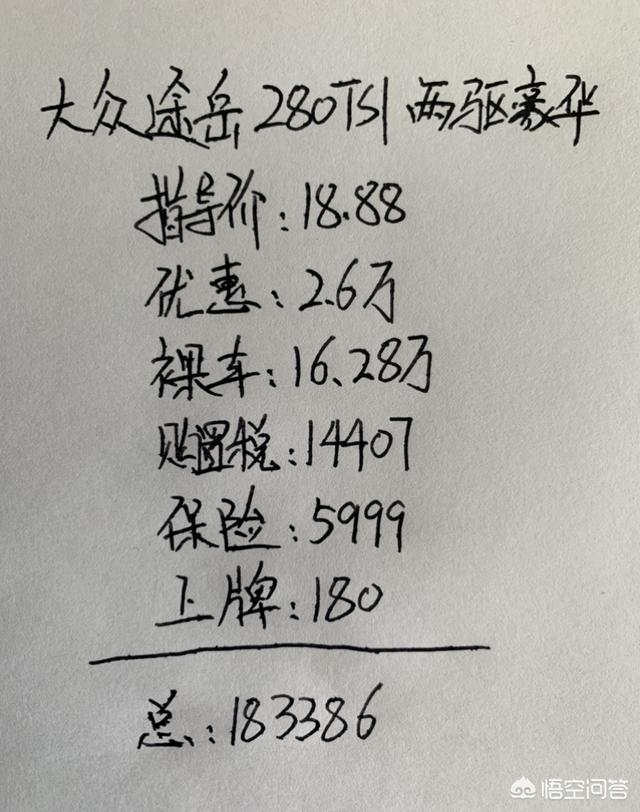 大众途岳280TSI 两驱豪华
指导价:18.88
优惠:2.6万
裸车:16.28万
购置税:14407
保险:5999
上牌:180
总:183386
悟空问答